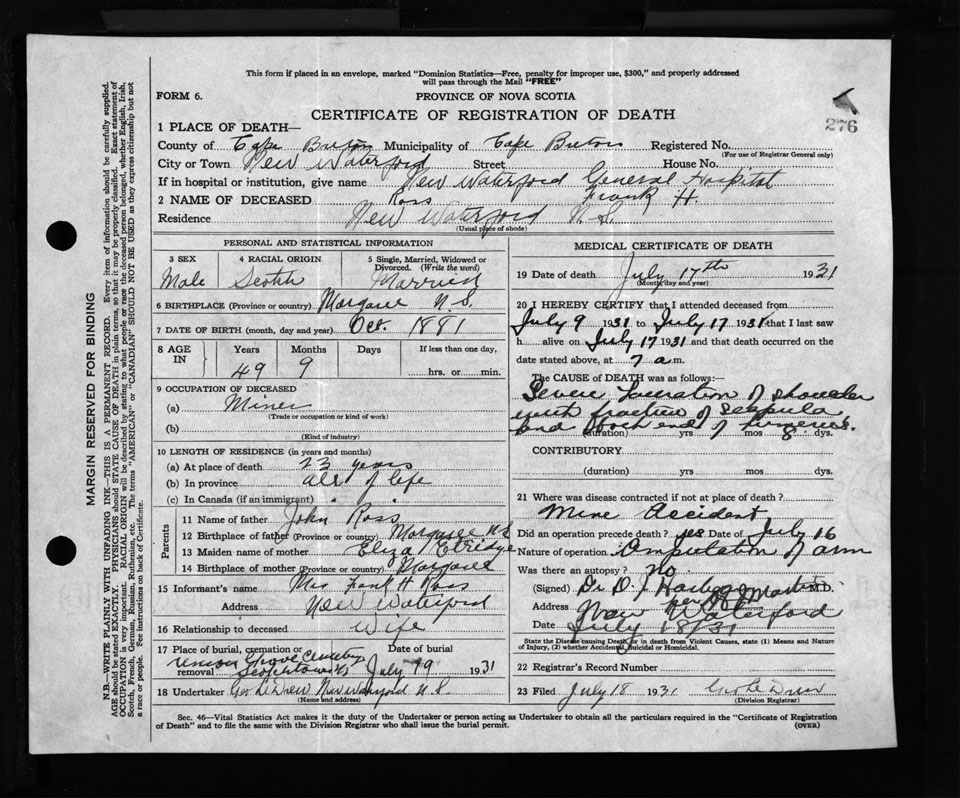 This form if placed in an envelope, marked "Dominion Statistics—Free, penalty for improper use, $300," and properly addressed
will pass through the Mail "FREE"
FORM 6.
PROVINCE OF NOVA SCOTIA
276
CERTIFICATE OF REGISTRATION OF DEATH
1 PLACE OF DEATH—
County of Cape Breton Municipality of Cape Breton Registered No.
(For use of Registrar General only)
City or Town New Waterford Street House No.
If in hospital or institution, give name New Waterford General Hospital
2 NAME OF DECEASED Ross Frank H.
Residence New Waterford N.S.
(Usual place of abode)
PERSONAL AND STATISTICAL INFORMATION
3 SEX 4 RACIAL ORIGIN 5 Single, Married, Widowed or
Divorced. (Write the word)
Male Scotch Married
6 BIRTHPLACE (Province or country) Margaree N.S.
7 DATE OF BIRTH (month, day and year) Oct. 1881
8 AGE IN Years Months Days If less than one day,
49 9 hrs. or min.
9 OCCUPATION OF DECEASED
(a) Miner
(Trade or occupation or kind of work)
(b)
(Kind of industry)
10 LENGTH OF RESIDENCE (in years and months)
(a) At place of death 23 years
(b) In province all of life
(c) In Canada (if an immigrant)
Parents
11 Name of father John Ross
12 Birthplace of father (Province or country) Margaree N.S.
13 Maiden name of mother Eliza Etridge
14 Birthplace of mother (Province or country) Margaree
15 Informant's name Mrs Frank H Ross
Address New Waterford
16 Relationship to deceased Wife
17 Place of burial, cremation or Date of burial
removal Union Grove Cemetery
Scotchtown July 19 1931
18 Undertaker New Waterford N.S.
(Name and address)
MEDICAL CERTIFICATE OF DEATH
19 Date of death July 17th 1931
(Month, day and year)
20 I HEREBY CERTIFY that I attended deceased from
July 9 1931 to July 17 1931 that I last saw
h alive on July 17 1931 and that death occurred on the
date stated above, at 7 a.m.
The CAUSE OF DEATH was as follows:—
Severe Laceration of shoulder
with fracture of scapula
and of humerus.
(duration) yrs mos dys.
CONTRIBUTORY
(duration) yrs mos dys.
21 Where was disease contracted if not at place of death?
Mine Accident
Did an operation precede death? yes Date of July 16
Nature of operation Amputation of arm
Was there an autopsy? No
(Signed) Dr D. J. M.D.
Address New Waterford
Date July 18/31
State the Disease causing Death, or in death from Violent Causes, state (1) Means and Nature
of Injury, (2) whether Accidental, Suicidal or Homicidal.
22 Registrar's Record Number
23 Filed July 18 1931
(Division Registrar)
Sec. 46—Vital Statistics Act makes it the duty of the Undertaker or person acting as Undertaker to obtain all the particulars required in the "Certificate of Registration
of Death" and to file the same with the Division Registrar who shall issue the burial permit.
(OVER)
MARGIN RESERVED FOR BINDING
N.B.—WRITE PLAINLY WITH UNFADING INK—THIS IS A PERMANENT RECORD. Every item of information should be carefully supplied.
AGE should be stated EXACTLY. PHYSICIANS should STATE CAUSE OF DEATH in plain terms, so that it may be properly classified. Exact statement of
OCCUPATION is very important. RACIAL ORIGIN will be described by stating to what people or race the deceased person belonged, whether English, Irish,
Scotch, French, German, Russian, Ruthenian, etc. The terms "AMERICAN" or "CANADIAN" SHOULD NOT BE USED as they express citizenship but not
a race or people. See instructions on back of Certificate.